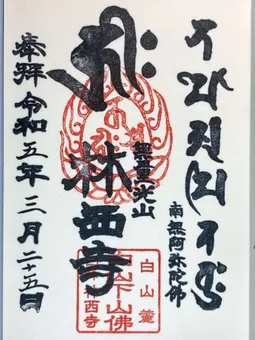 南無阿弥陀佛
𑖮𑖿𑖨𑖱𑖾
無量光山
林西寺
奉拜 令和五年三月二十五日
白山麓
下山佛
西寺